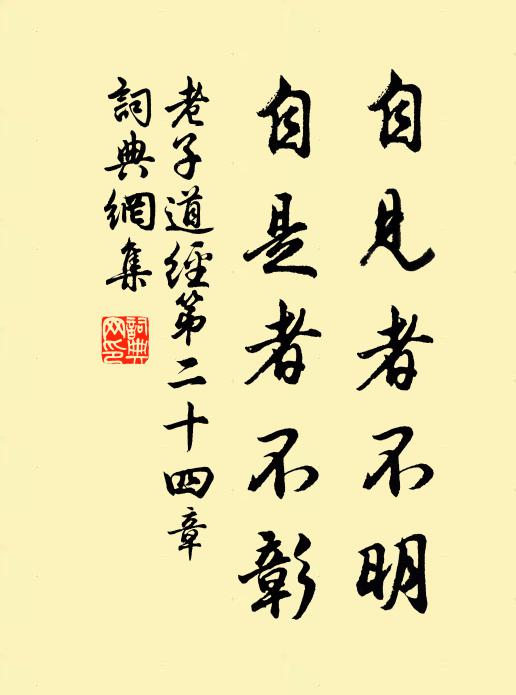 自見者不明
自是者不彰
老子道經第二十四章
詞典網集
詞典
网印